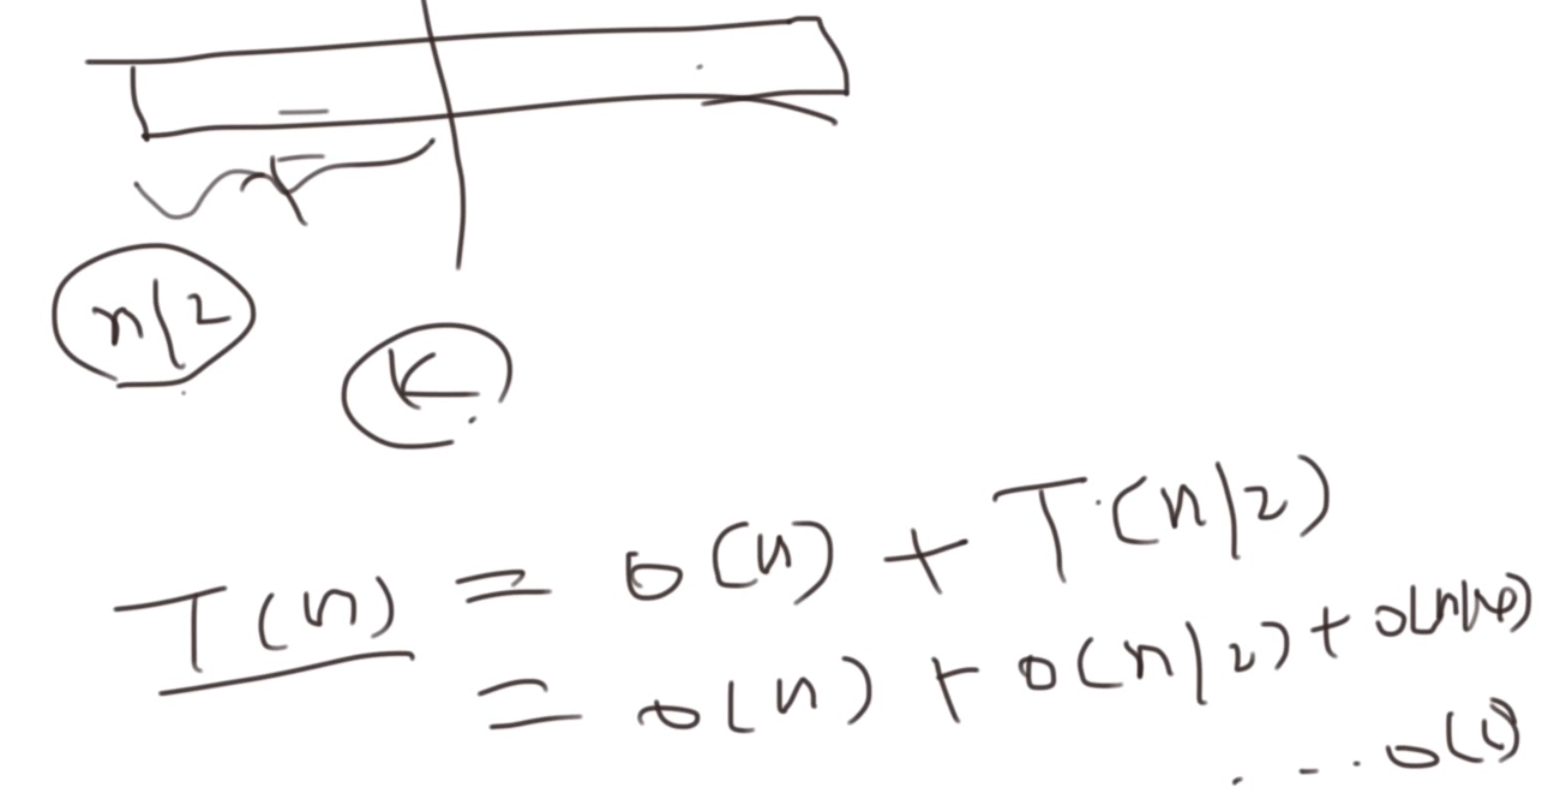 n/2
K
T(n) = O(n) + T(n/2)
= O(n) + O(n/2) + O(n/4)
... O(1)